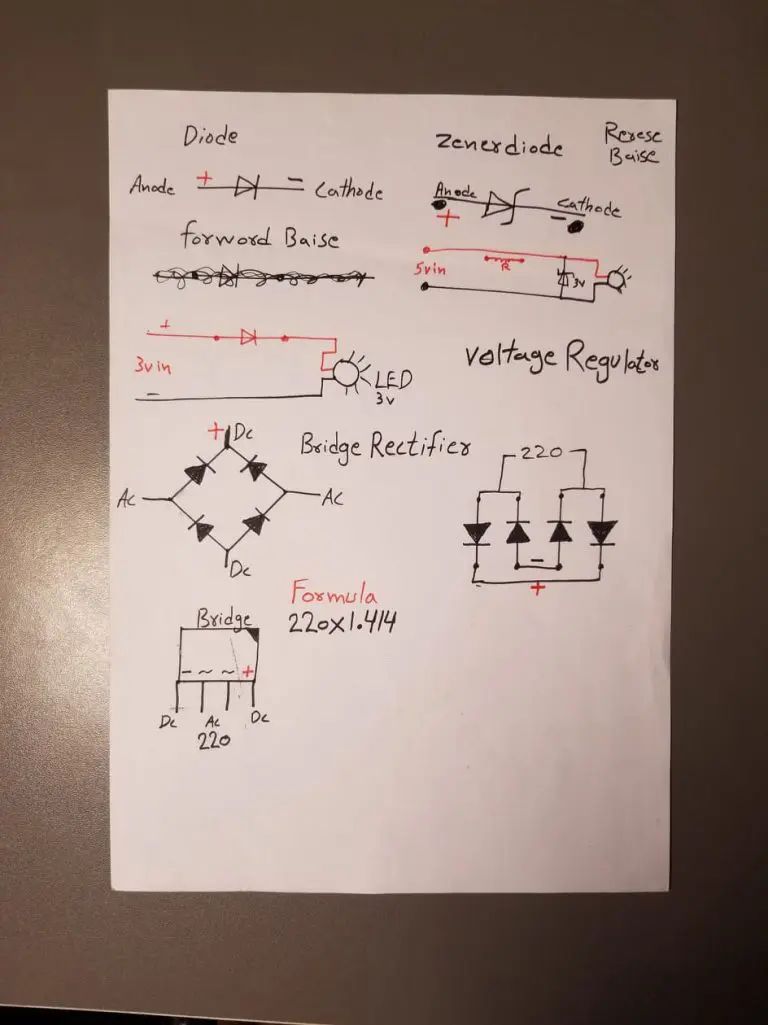 Diode
Anode + − Cathode
forword Baise
+
3vin
−
LED
3v
Zenerdiode
Rerese
Baise
Anode
+
Cathode
−
5vin
R
3v
Voltage Regulator
Bridge Rectifier
+ Dc
Ac
Ac
Dc
220
−
+
Formula
220x1.414
Bridge
− ~ ~ +
Dc Ac Dc
220